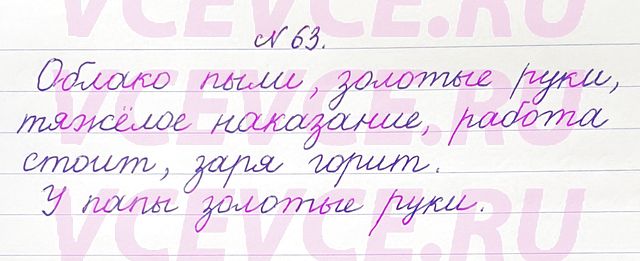 VCEVCE.RU
№ 63.
Облако пыли, золотые руки,
VCEVCE.RU
тяжёлое наказание, работа
стоит, заря горит.
У папы золотые руки.
VCEVCE.RU